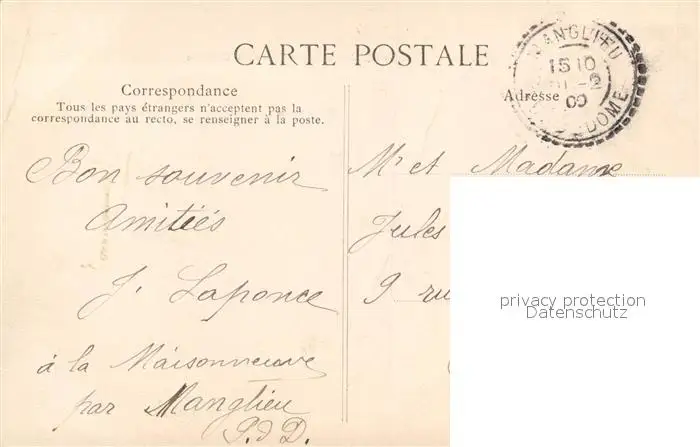 CARTE POSTALE
Correspondance
Tous les pays étrangers n'acceptent pas la
correspondance au recto, se renseigner à la poste.
Bon souvenir
Amitiés
J. Laponce
à la Maisonneuve
par Manglieu
P. d D.
MANGLIEU
15 10
DOME
Adresse
Mr et Madame
Jules
9 ru
privacy protection
Datenschutz